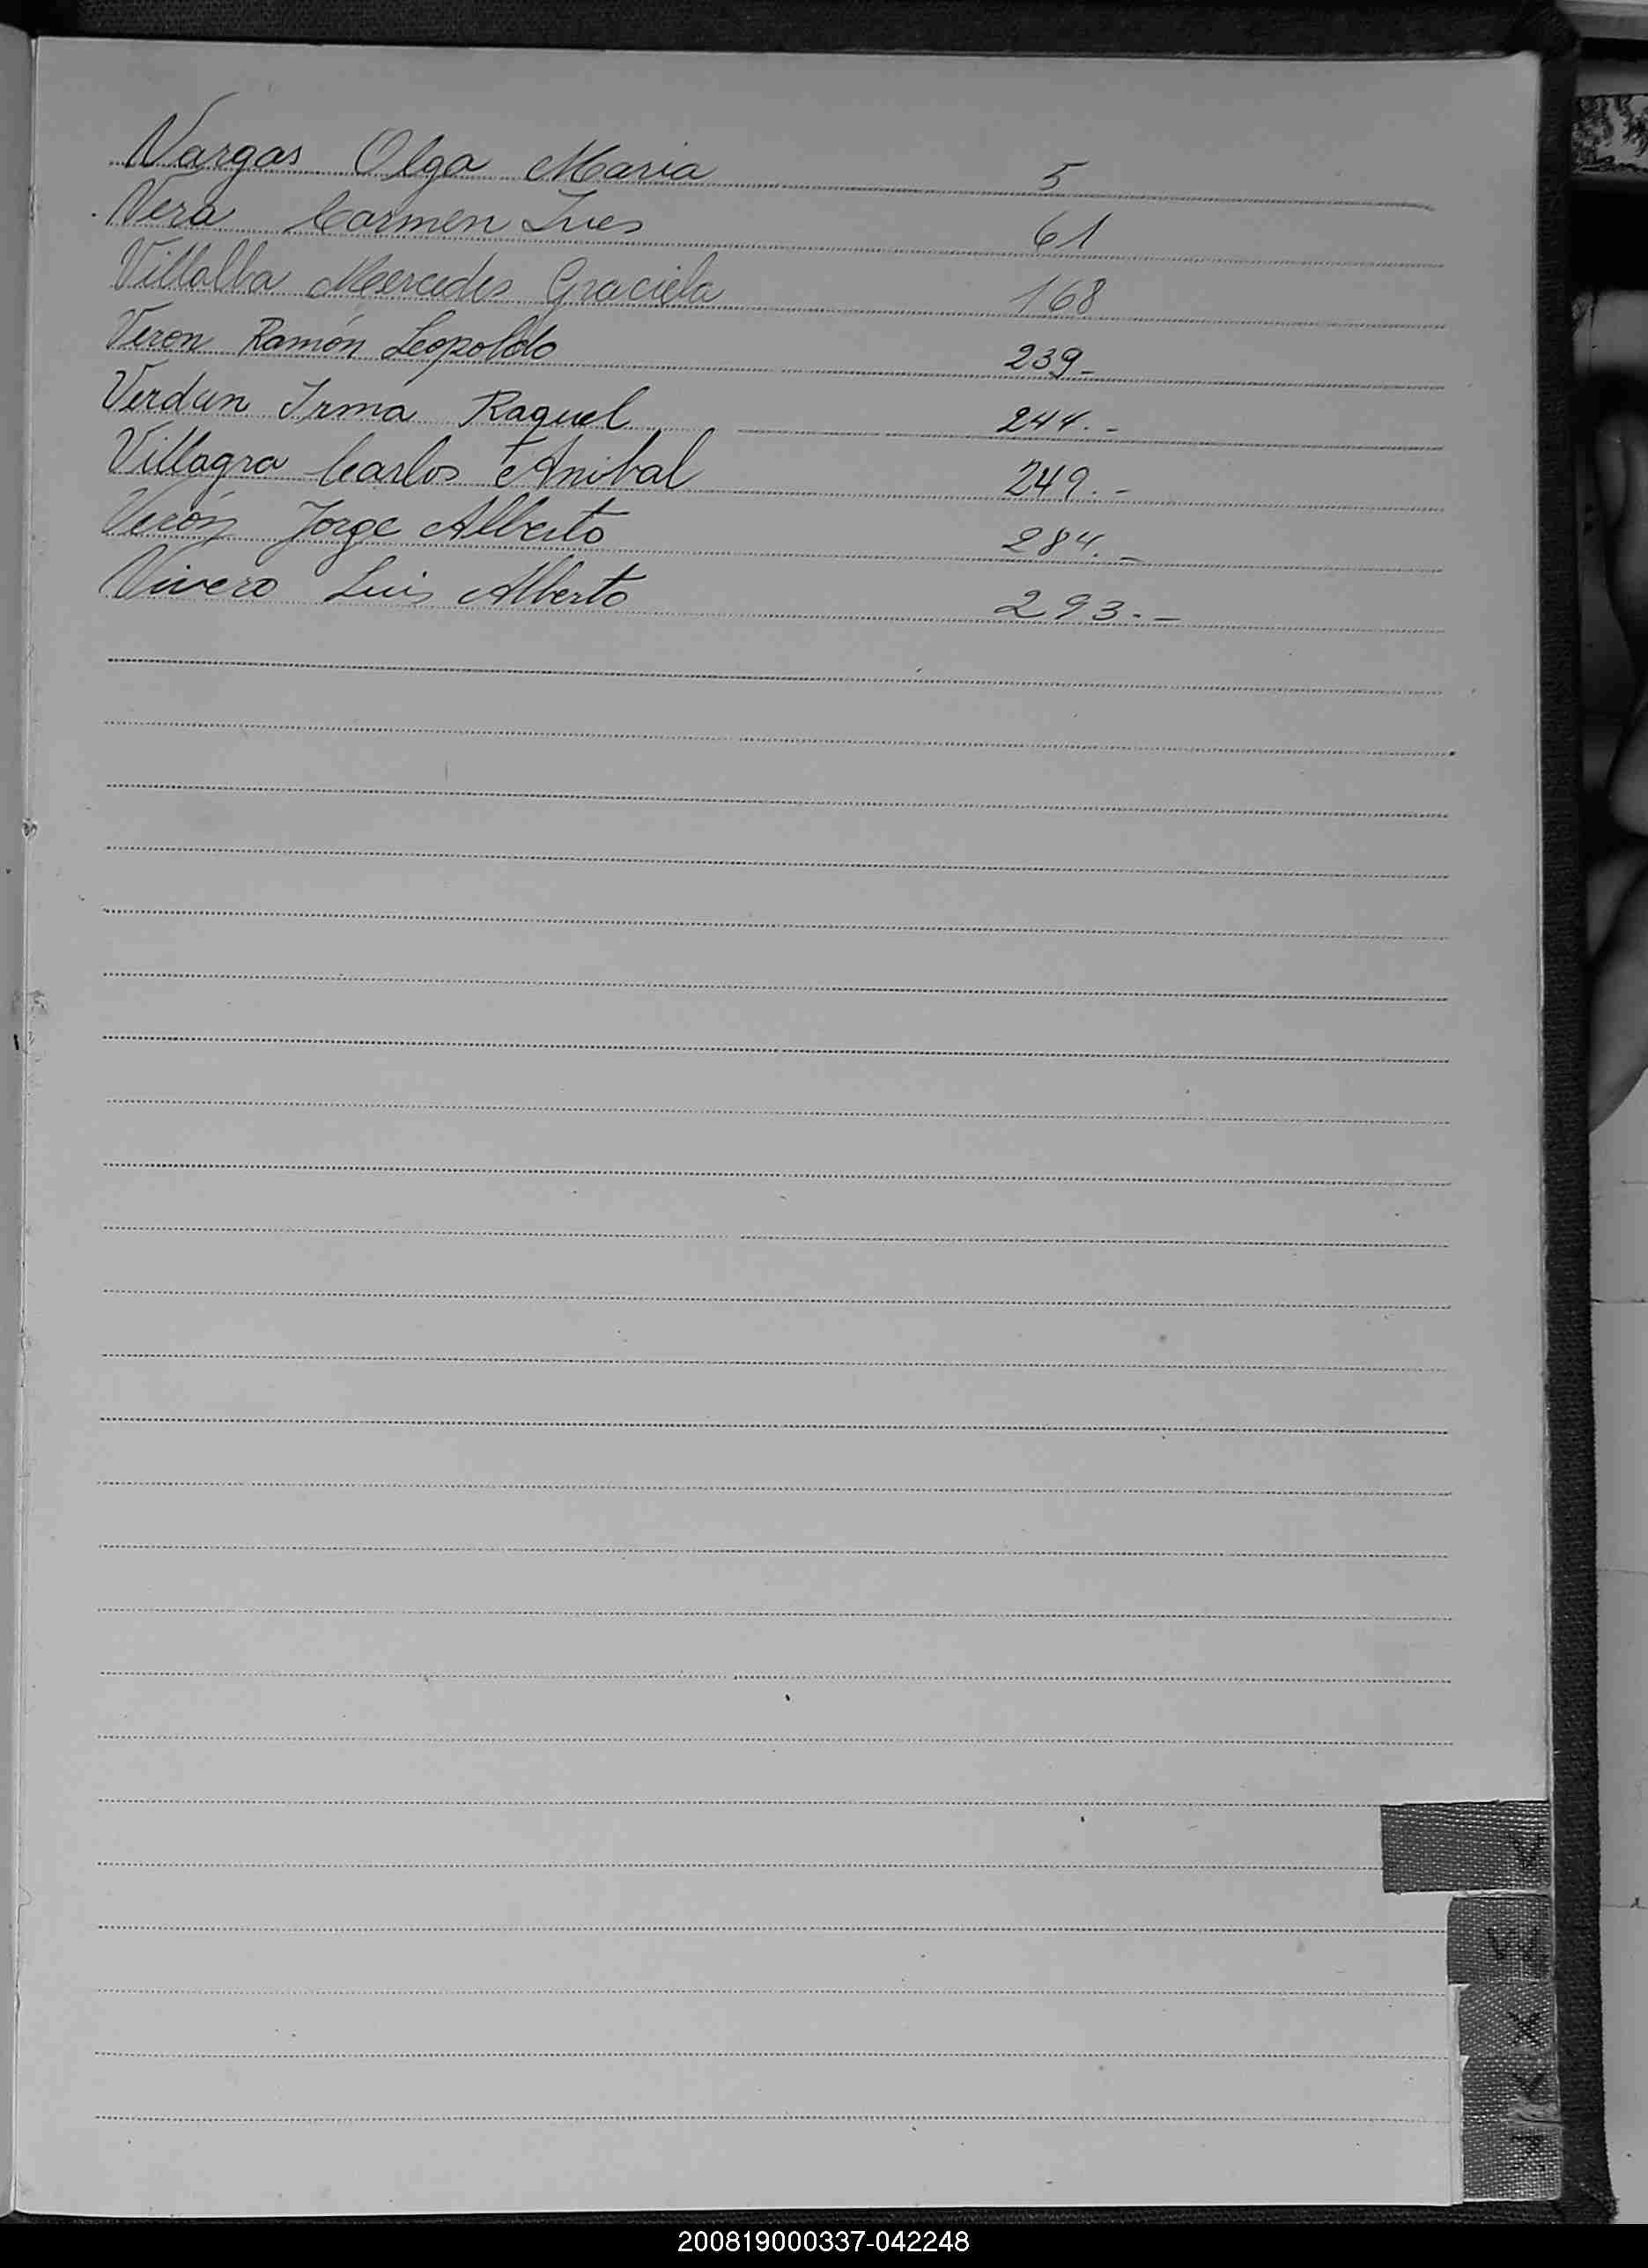 Vargas Olga Maria 5
Vera Carmen Ines 61
Villalba Mercedes Graciela 168
Veron Ramón Leopoldo 239-
Verdun Irma Raquel 244.-
Villagra Carlos Anibal 249.-
Verón Jorge Alberto 284.-
Vivero Luis Alberto 293.-
V
W
X
Y
200819000337-042248